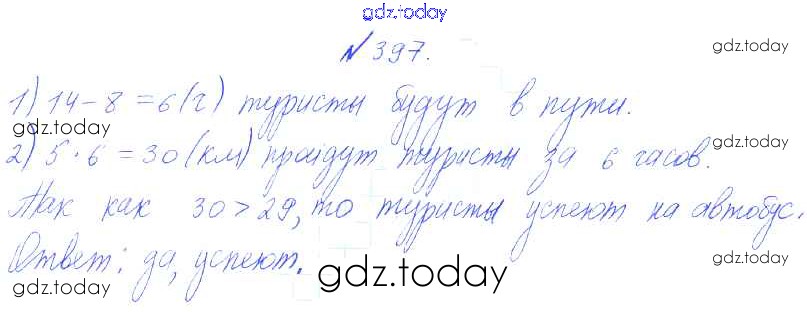 gdz.today
№397.
gdz.today
1) 14 - 8 = 6 (ч) туристы будут в пути.
gdz.today
gdz.today
2) 5 · 6 = 30 (км) пройдут туристы за 6 часов.
Так как 30 > 29, то туристы успеют на автобус.
gdz.today
gdz.today
Ответ: да, успеют.
gdz.today
gdz.today
gdz.today